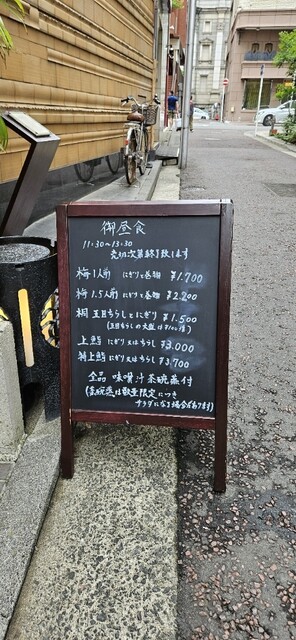 御昼食
11:30~13:30
売切次第終了致します
梅1人前 にぎりと巻物 ¥1.700
梅1.5人前 にぎりと巻物 ¥2.200
桐 五目ちらしとにぎり ¥1.500
(五目ちらしの大盛は+100円)
上鮨 にぎり又はちらし ¥3.000
特上鮨 にぎり又はちらし ¥3.700
全品 味噌汁茶碗蒸付
(茶碗蒸は数量限定につき
サラダになる場合があります)